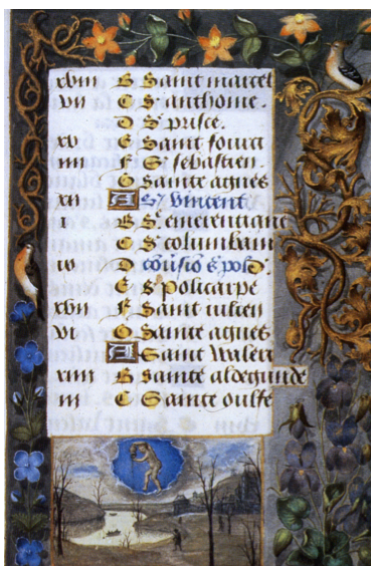 xviii B Saint marcel
vii C S. anthoine.
D S. prisce.
xv E Saint fourci
iiii F S. sebastien.
G Sainte agnes
xii A S. vincent
i B S. emerentiane
C S. columbain
ix D
E S. policarpe
xvii F Saint iulien
vi G Sainte agnes
A Saint Waleri
xiiii B Sainte aldegunde
iii C Sainte oulfe